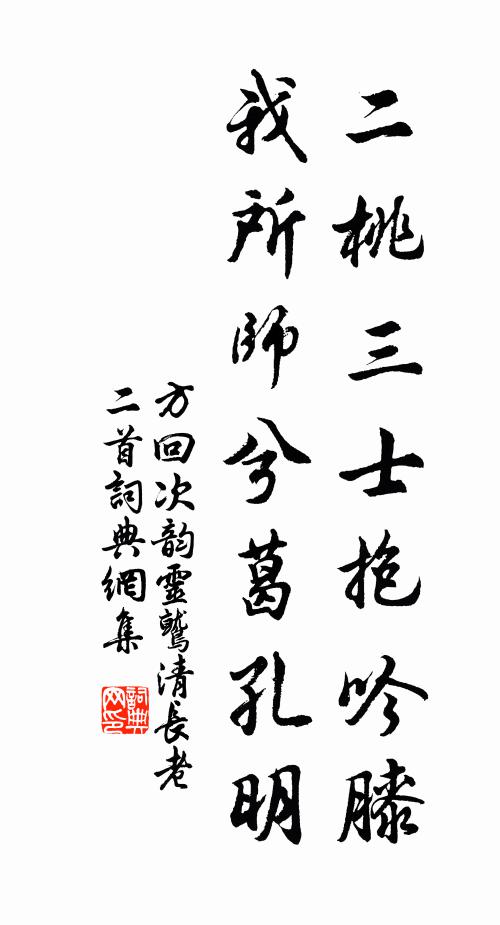 二桃三士抱吟膝
我所師兮葛孔明
方回次韵靈鷲清長老
二首詞典網集
詞典网印